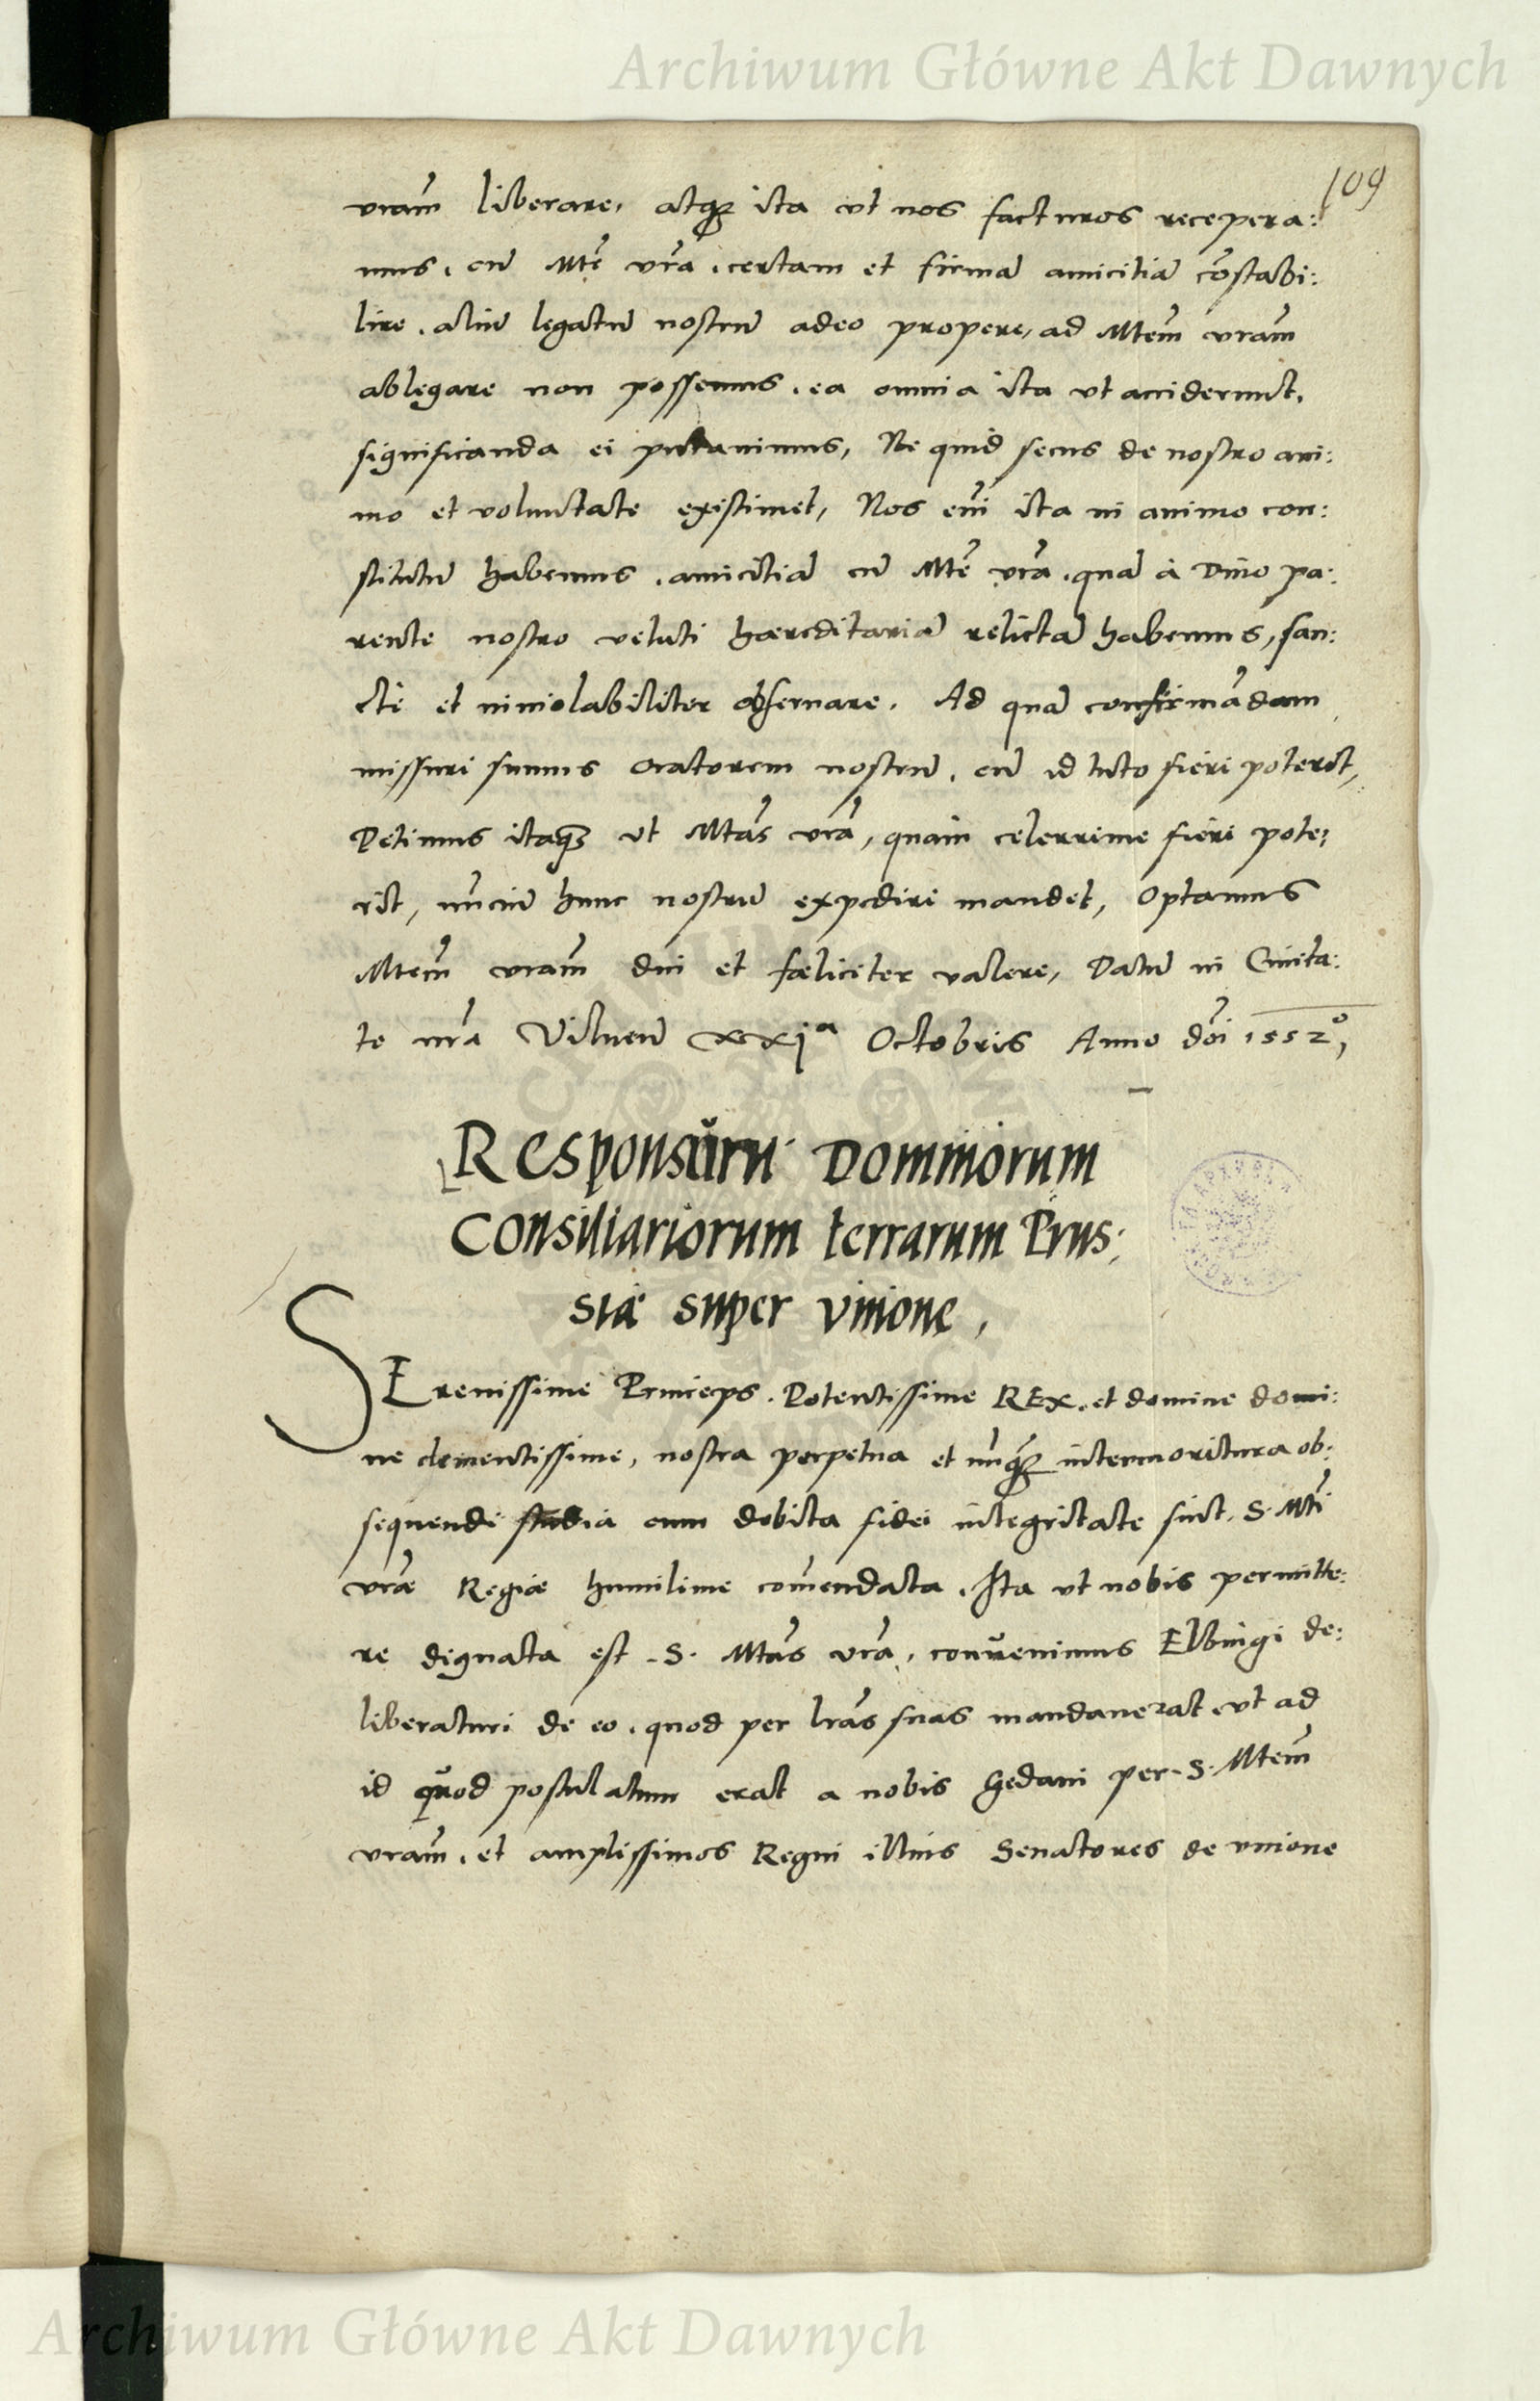 Archiwum Główne Akt Dawnych
109
vram̃ liberare, atq̃ ita vt nos facturos recepera:
mus, cũ Mte vrã, certam et firmã amicitiã cõstabi:
lire, aliũ legatũ nostrũ adeo propere, ad Mtem̃ vram̃
ablegare non possemus, ea omnia ita vt acciderunt,
significanda ei putauimus, Ne quid secus de nostro ani:
mo et voluntate existimet, Nos em̃ ita in animo con:
stitutũ habemus, amicitiã cũ Mte vrã, quã à Diuo pa:
rente nostro veluti hæreditariã relictã habemus, san:
cte et inuiolabiliter obseruare. Ad quã confirmãdam
missuri sumus oratorem nostrũ, cũ id tuto fieri poterit,
Petimus itaq̃ vt Mtas vrã, quam celerrime fieri pote:
rit, nunciũ hunc nostrũ expediri mandet, Optamus
Mtem̃ vram̃ diu et fœliciter valere, Datũ in Ciuita:
te nrã Vilneñ xxjª Octobris Anno dñi 1552º,
Responsum Dominorum
Consiliariorum terrarum Prus:
siæ super vnione,
SErenissime Princeps. Potentissime REx, et domine domi:
ne clementissime, nostra perpetua et nũq̃ intermoritura ob:
sequendi studia cum debita fidei integritate sint, S. Mti
vræ Regiæ humilime com̃endata. Ita vt nobis permitte:
re dignata est S. Mtas vrã, conuenimus Elbingi de:
liberaturi de eo, quod per lras suas mandauerat, vt ad
id quod postulatum erat a nobis Gedani per S. Mtem̃
vram̃, et amplissimos Regni illius Senatores de vnione
Archiwum Główne Akt Dawnych